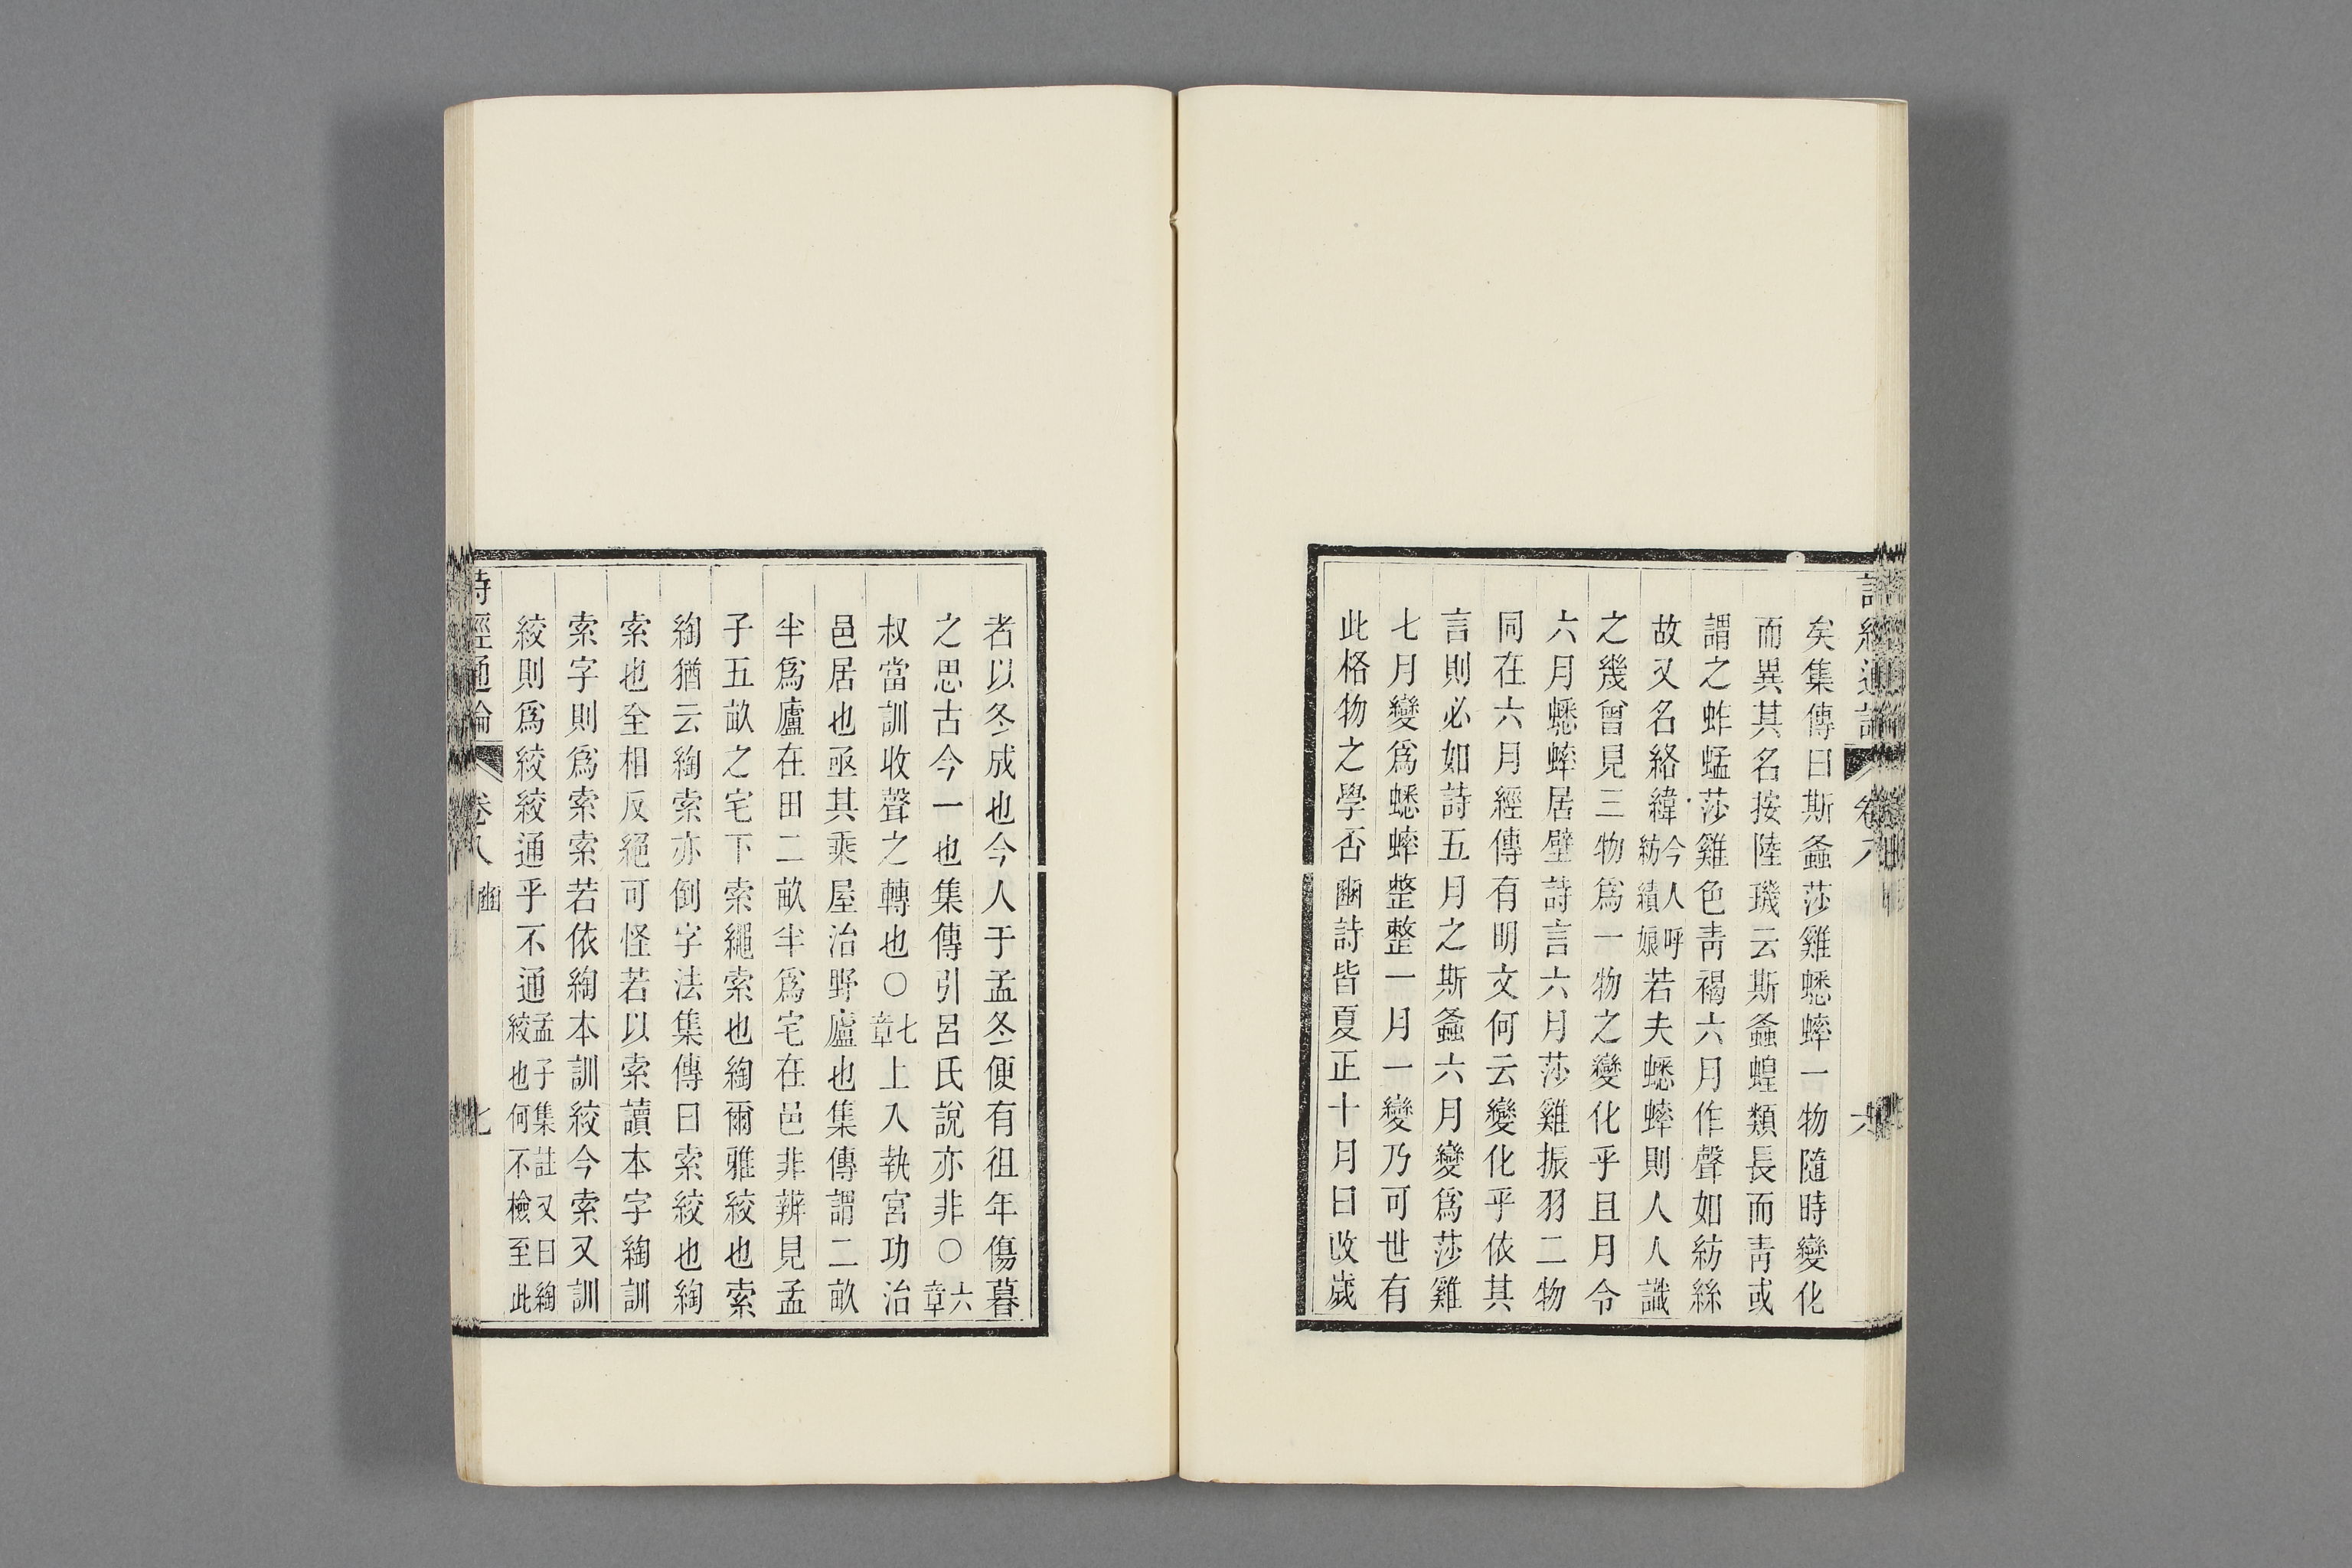 矣集傳曰斯螽莎雞蟋蟀一物隨時變化
而異其名按陸璣云斯螽蝗類長而靑或
謂之蚱蜢莎雞色靑褐六月作聲如紡絲
故又名絡緯今人呼紡績娘若夫蟋蟀則人人識
之幾曾見三物爲一物之變化乎且月令
六月蟋蟀居壁詩言六月莎雞振羽二物
同在六月經傳有明文何云變化乎依其
言則必如詩五月之斯螽六月變爲莎雞
七月變爲蟋蟀整整一月一變乃可世有
此格物之學否豳詩皆夏正十月曰改歲
者以冬成也今人于孟冬便有徂年傷暮
之思古今一也集傳引呂氏說亦非○六章
叔當訓收聲之轉也○七章上入執宮功治
邑居也亟其乘屋治野廬也集傳謂二畝
半爲廬在田二畝半爲宅在邑非辨見孟
子五畝之宅下索繩索也綯爾雅絞也索
綯猶云綯索亦倒字法集傳曰索絞也綯
索也全相反絕可怪若以索讀本字綯訓
索字則爲索索若依綯本訓絞今索又訓
絞則爲絞絞通乎不通孟子集註又曰綯絞也何不檢至此
詩經通論 卷八 豳 七